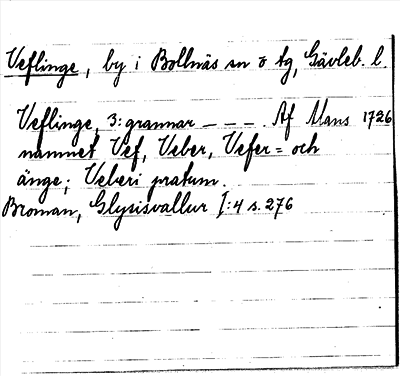 Veflinge, by i Bollnäs sn o tg, Gävleb. l.
Veflinge, 3: grannar — — —. Af Mans 1726
namnet Vef, Veber, Vefer= och
änge; Veberi pratum.
Broman, Glysisvallur I:4 s. 276